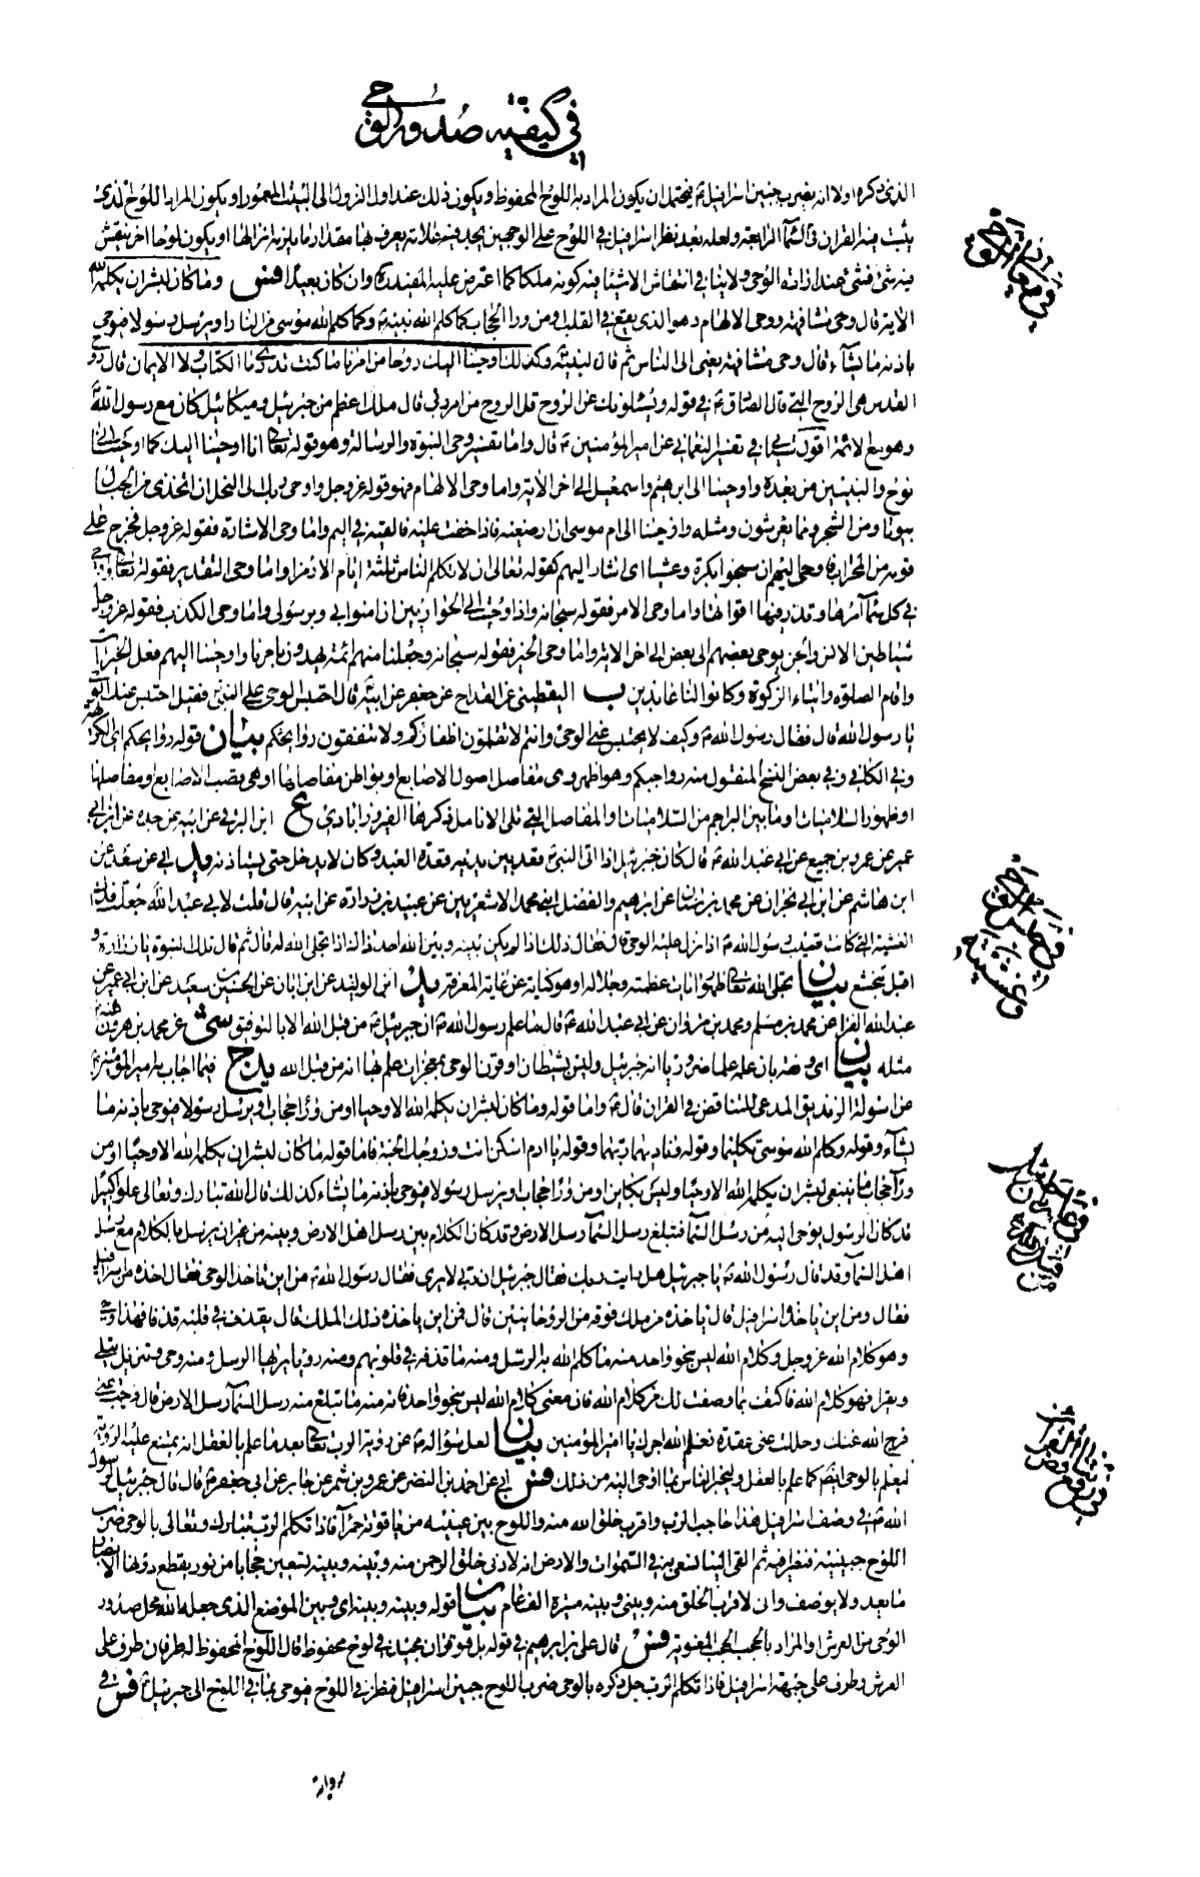 في كيفية صدور الوحي
الذي ذكره اولا انه يضرب جبين اسرافيل فيحتمل ان يكون المراد به اللوح المحفوظ ويكون ذلك عند اول النزول الى البيت المعمور او يكون المراد اللوح الذي
يثبت فيه القران في السماء الرابعة ولعله بعد نظر اسرافيل في اللوح على الوحي يجد فيه علامة يعرف بها مقدار ما يلزم انزالها او يكون لوحا اخر ينقش
فيه شئ فشئ عند ارادة الوحي ولا ينافي انتقاش الاشياء فيه كونه ملكا كما اعترض عليه المفيد ره وان كان بعيدا فس وما كان لبشر ان يكلمه الله
الاية قال وحي مشافهة ووحي الالهام وهو الذي يقع في القلب او من وراء الحجاب كما كلم الله نبيه وكما كلم الله موسى من النار او يرسل رسولا فيوحي
باذنه ما يشاء قال وحي مشافهة يعني الى الناس ثم قال لنبيه وكذلك اوحينا اليك روحا من امرنا ما كنت تدري ما الكتاب ولا الايمان قال روح
القدس هي الروح التي قال الصادق في قوله ويسئلونك عن الروح قل الروح من امر ربي قال ملك اعظم من جبرئيل وميكائيل كان مع رسول الله
وهو مع الائمة اقول سيجئ في تفسير النعماني عن امير المؤمنين قال واما تفسير وحي النبوة والرسالة وهو قوله تعالى انا اوحينا اليك كما اوحينا الى
نوح والنبيين من بعده واوحينا الى ابرهيم واسمعيل الى اخر الاية واما وحي الالهام فهو قوله عز وجل واوحى ربك الى النحل ان اتخذي من الجبال
بيوتا ومن الشجر ومما يعرشون ومثله واوحينا الى ام موسى ان ارضعيه فاذا خفت عليه فالقيه في اليم واما وحي الاشارة فقوله عز وجل فخرج على
قومه من المحراب فاوحى اليهم ان سبحوا بكرة وعشيا اي اشار اليهم كقوله تعالى ان لا تكلم الناس ثلثة ايام الا رمزا واما وحي التقدير فقوله تعالى واوحى
في كل سماء امرها وقدر فيها اقواتها واما وحي الامر فقوله سبحانه واذ اوحيت الى الحواريين ان امنوا بي وبرسولي واما وحي الكذب فقوله عز وجل
شياطين الانس والجن يوحي بعضهم الى بعض الى اخر الاية واما وحي الخبر فقوله سبحانه وجعلنا منهم ائمة يهدون بامرنا واوحينا اليهم فعل الخيرات
واقام الصلوة وايتاء الزكوة وكانوا لنا عابدين ب اليقطيني عن القداح عن جعفر عن ابيه قال احتبس الوحي على النبي فقيل احتبس عنك الوحي
يا رسول الله قال فقال رسول الله وكيف لا يحتبس عني الوحي وانتم لا تقلمون اظفاركم ولا تنقون روايحكم بيان قوله روايحكم اي الكريهة
وفي الكافي وفي بعض النسخ المنقول منه رواجبكم وهو اظهر وهي مفاصل اصول الاصابع او بواطن مفاصلها او هي قصب الاصابع او مفاصلها
او ظهور السلاميات او ما بين البراجم من السلاميات والمفاصل التي تلي الانامل ذكرها الفيروزابادي ع ابن البرقي عن ابيه عن جده عن ابن ابي
عمير عن عمرو بن جميع عن ابي عبد الله قال كان جبرئيل اذا اتى النبي قعد بين يديه قعدة العبد وكان لا يدخل حتى يستاذنه يد ابي عن سعد عن
ابن هاشم عن ابن ابي نجران عن محمد بن سنان عن ابراهيم والفضل ابني محمد الاشعريين عن عبيد بن زرارة عن ابيه قال قلت لابي عبد الله جعلت فداك
الغشية التي كانت تصيب رسول الله اذا نزل عليه الوحي قال فقال ذلك اذا لم يكن بينه وبين الله احد ذاك اذا تجلى الله له قال ثم قال تلك النبوة يا زرارة و
اقبل يتخشع بيان تجلى الله تعالى ظهور ايات عظمته وجلاله او هو كناية عن غاية المعرفة يد ابن الوليد عن ابن ابان عن الحسين بن سعيد عن ابن ابي عمير عن
عبد الله الفرا عن محمد بن مسلم ومحمد بن مروان عن ابي عبد الله قال ما علم رسول الله ان جبرئيل من قبل الله الا بالتوفيق شى عن محمد بن هرون عنه
مثله بيان اي وفقه بان علمه علما ضروريا انه جبرئيل وليس بشيطان او قرن الوحي بمعجزات علم بها انه من قبل الله يد ج فيما اجاب به امير المؤمنين
عن اسولة الزنديق المدعي للتناقض في القران قال واما قوله وما كان لبشر ان يكلمه الله الا وحيا او من وراء حجاب او يرسل رسولا فيوحي باذنه ما
يشاء وقوله وكلم الله موسى تكليما وقوله وناديهما ربهما وقوله يا ادم اسكن انت وزوجك الجنة فاما قوله ما كان لبشر ان يكلمه الله الا وحيا او من
وراء حجاب ما ينبغي لبشر ان يكلمه الله الا وحيا وليس بكاين او من وراء حجاب او يرسل رسولا فيوحي باذنه ما يشاء كذلك قال الله تبارك وتعالى علوا كبيرا
قد كان الرسول يوحى اليه من رسل السماء فتبلغ رسل السماء رسل الارض وقد كان الكلام بين رسل اهل الارض وبينه من غير ان يرسل بالكلام مع رسل
اهل السماء وقد قال رسول الله يا جبرئيل هل رايت ربك فقال جبرئيل ان ربي لا يرى فقال رسول الله من اين تاخذ الوحي فقال اخذه من اسرافيل
فقال ومن اين ياخذه اسرافيل قال ياخذه من ملك فوقه من الروحانيين قال فمن اين ياخذه ذلك الملك قال يقذف في قلبه قذفا فهذا وحي
وهو كلام الله عز وجل وكلام الله ليس بنحو واحد منه ما كلم الله به الرسل ومنه ما قذفه في قلوبهم ومنه رؤيا يريها الرسل ومنه وحي وتنزيل يتلى
ويقرا فهو كلام الله فاكتف بما وصفت لك من كلام الله فان معنى كلام الله ليس بنحو واحد فانه منه ما تبلغ منه رسل السماء رسل الارض قال فرجت عني
فرج الله عنك وحللت عني عقدة فعظم الله اجرك يا امير المؤمنين بيان لعل سؤاله عن رؤية الرب تعالى بعد ما علم بالعقل انه يمتنع عليه الرؤية
ليعلم بالوحي ايضا كما علم بالعقل وليخبر الناس بما اوحي اليه من ذلك فس ابي عن احمد بن النضر عن عمرو بن شمر عن جابر عن ابي جعفر قال قال جبرئيل لرسول
الله في وصف اسرافيل هذا حاجب الرب واقرب خلق الله منه واللوح بين عينيه من ياقوتة حمراء فاذا تكلم الرب تبارك وتعالى بالوحي ضرب
اللوح جبينه فنظر فيه ثم القى الينا نسعى به في السموات والارض انه لادنى خلق الرحمن منه وبينه وبينه تسعين حجابا من نور يقطع دونها الابصار
ما يعد ولا يوصف واني لاقرب الخلق منه وبيني وبينه مسيرة الف عام بيان قوله وبينه وبينه اي وبين الموضع الذي جعله الله محل صدور
الوحي من العرش او المراد بالحجب الحجب المعنوية فس قال علي بن ابراهيم في قوله بل هو قران مجيد في لوح محفوظ قال اللوح المحفوظ له طرفان طرف على
العرش وطرف على جبهة اسرافيل فاذا تكلم الرب جل ذكره بالوحي ضرب اللوح جبين اسرافيل فنظر في اللوح فيوحي بما في اللوح الى جبرئيل فس في
رواية